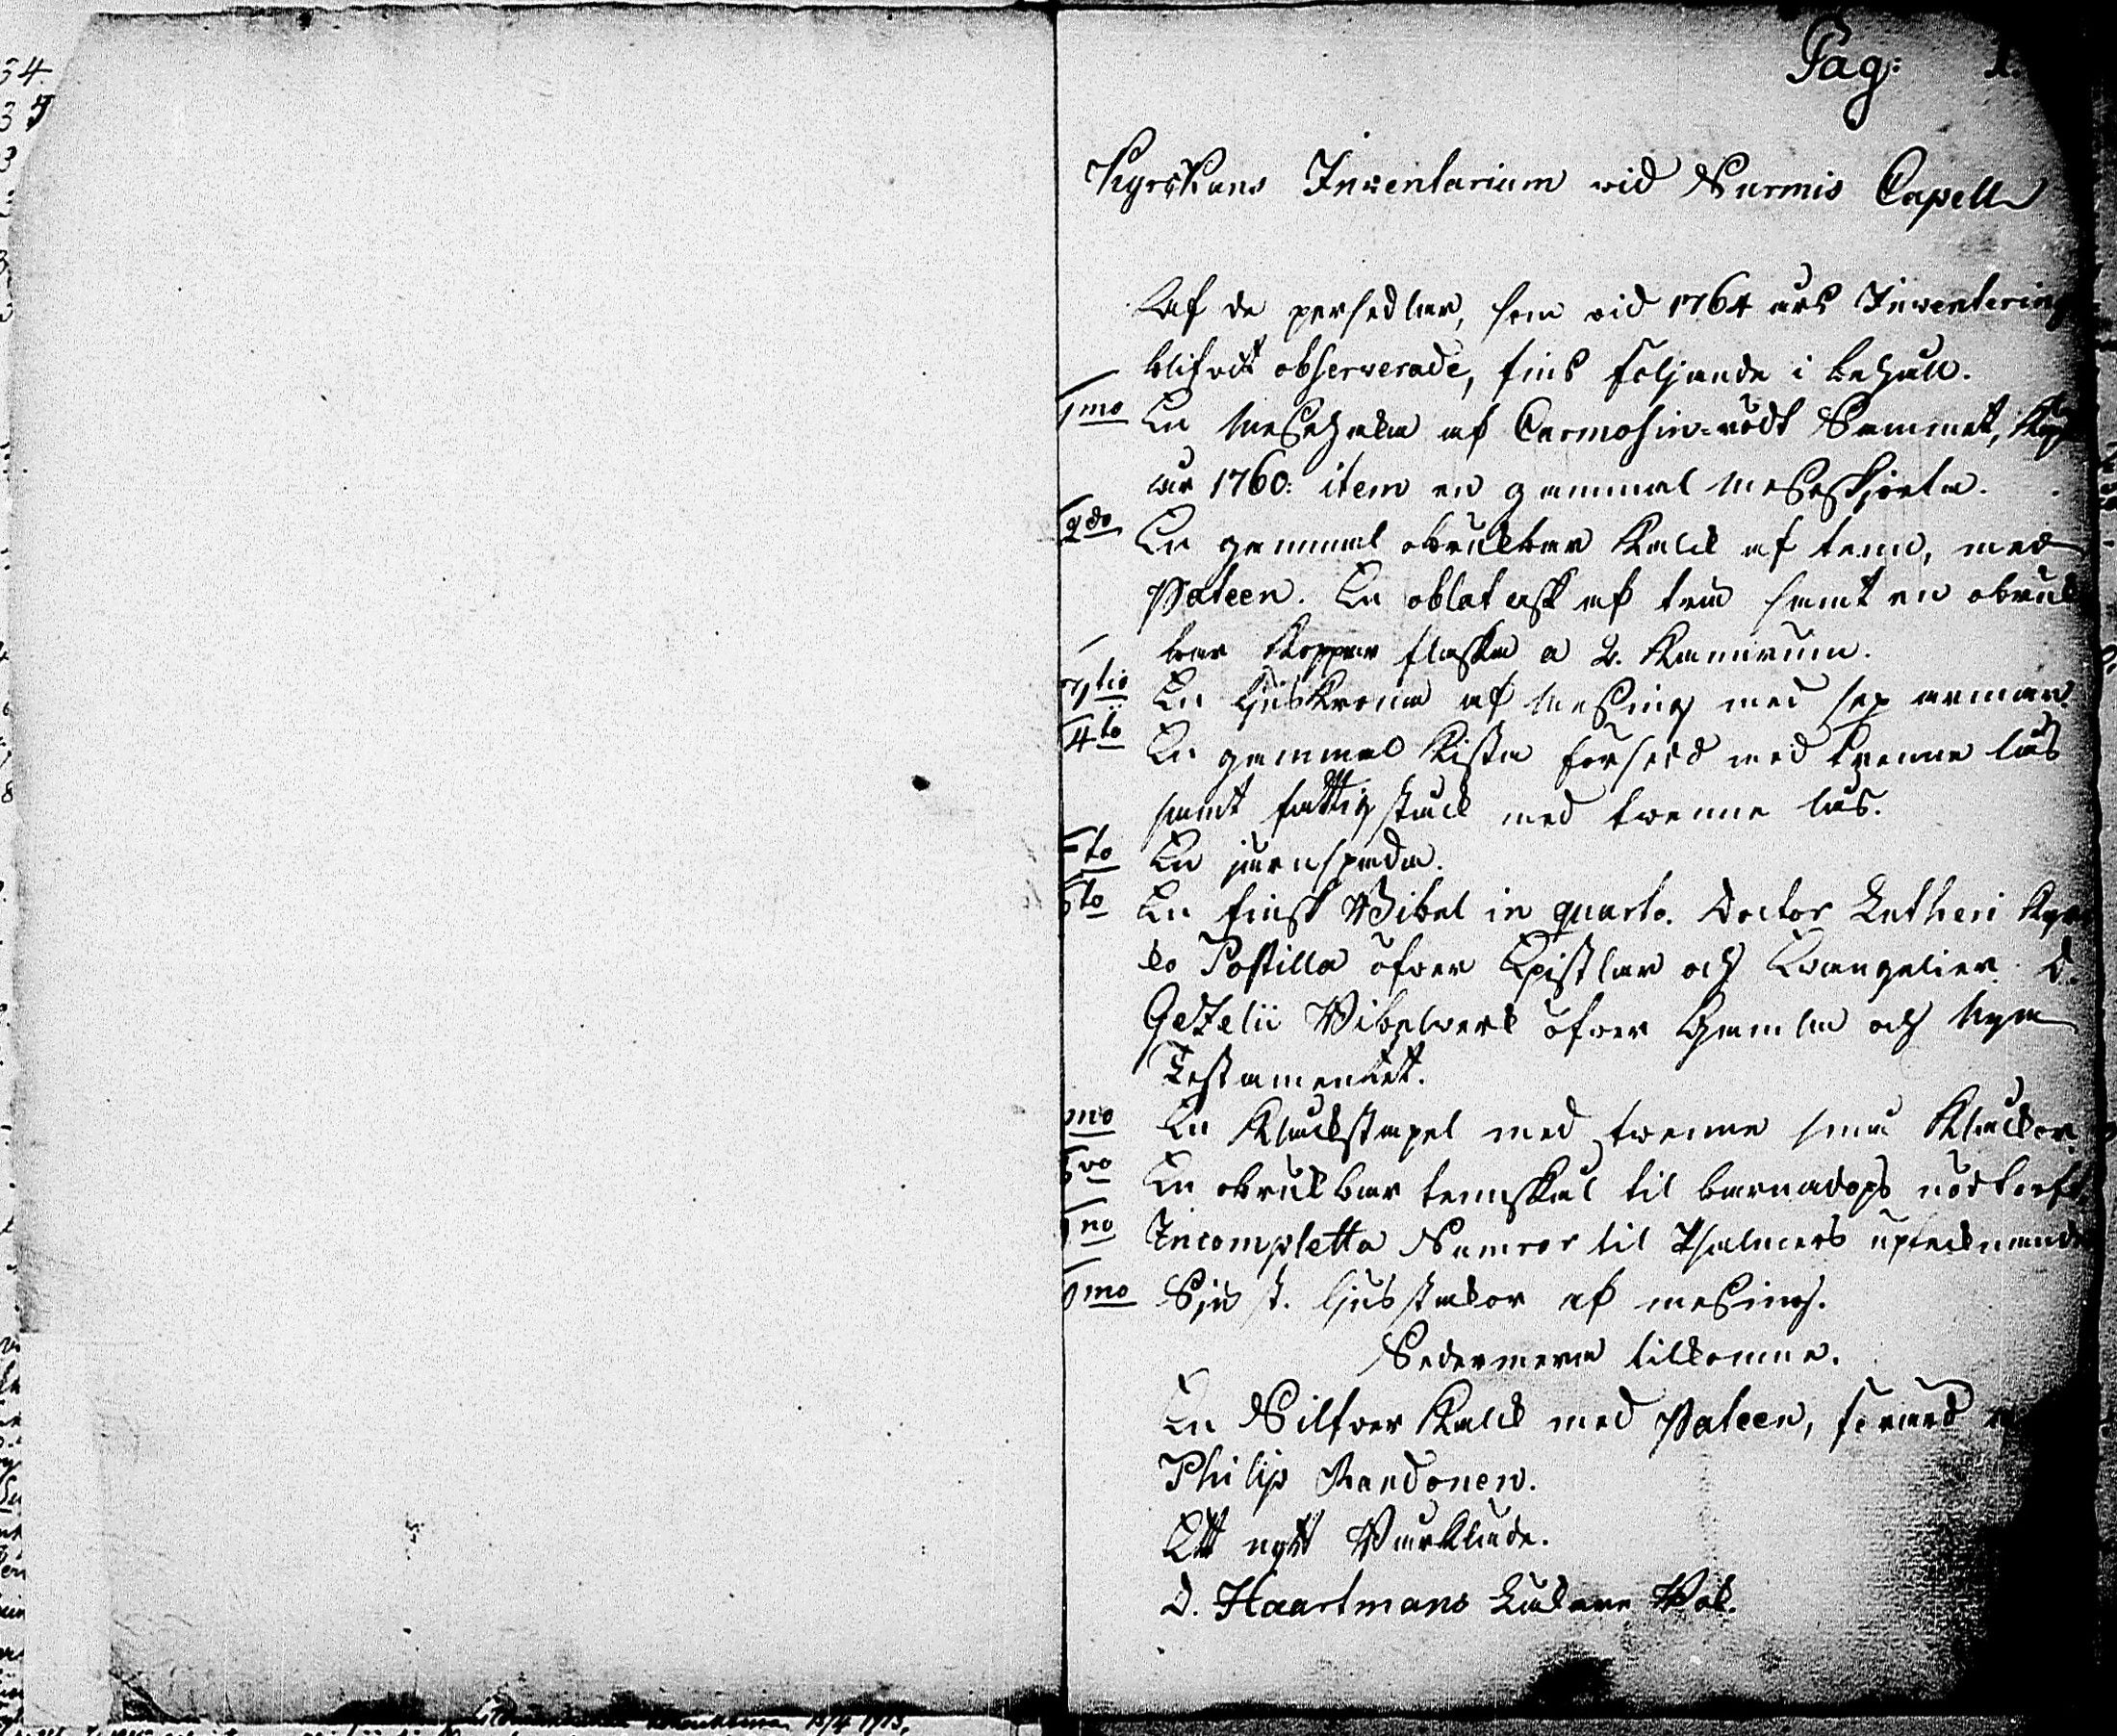 Pag: 1.
Kyrckans Inventarium vid Nurmis Capell
Af de persedlar, som vid 1764 års Inventering
blifvit observerade, fins följande i behåll.
1mo En Messehaka af Carmosin-rödt Sammet, köpt
år 1760: item en gammal Messeskjorta.
2do En gammal obrukbar Kalck af tenn, med
Pateen. En oblat ask af tenn samt en obruk
bar Koppar flaska a 2. Kannrum.
3tio En Ljuskrona af Messing med sex armar.
4to En gammal Kista försedd med tvenne lås
samt fattigstock med tvenne lås.
5to En jernspada.
6to En finsk Bibel in quarto. Doctor Lutheri Kyrc
ko Postilla öfver Epistlar och Evangelier. D.
Gezelii Bibelverk öfver Gamla och Nya
Testamentet.
7mo En Klockstapel med tvenne små Klockor.
8vo En obrukbar tennskål til barnadops nödtorft
9no Incompletta Numror til Psalmers upteknande
10mo Sju st. ljusstakor af messing.
Sedermera tilkomne.
En Silfver Kalck med Pateen, förärad af
Philip Randonen.
Ett nytt Bårkläde.
D. Haartmans Läkare Bok.